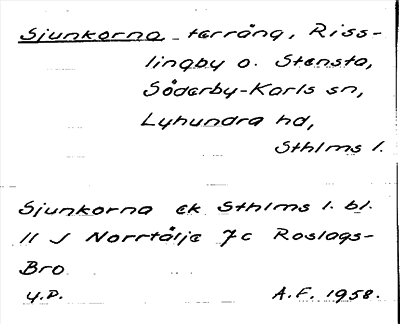 Sjunkorna terräng, Riss-
lingby o. Stensta,
Söderby-Karls sn,
Lyhundra hd,
Sthlms l.
Sjunkorna ek Sthlms l. bl.
11 J Norrtälje 7c Roslags-
Bro
U.P. A.F. 1958.